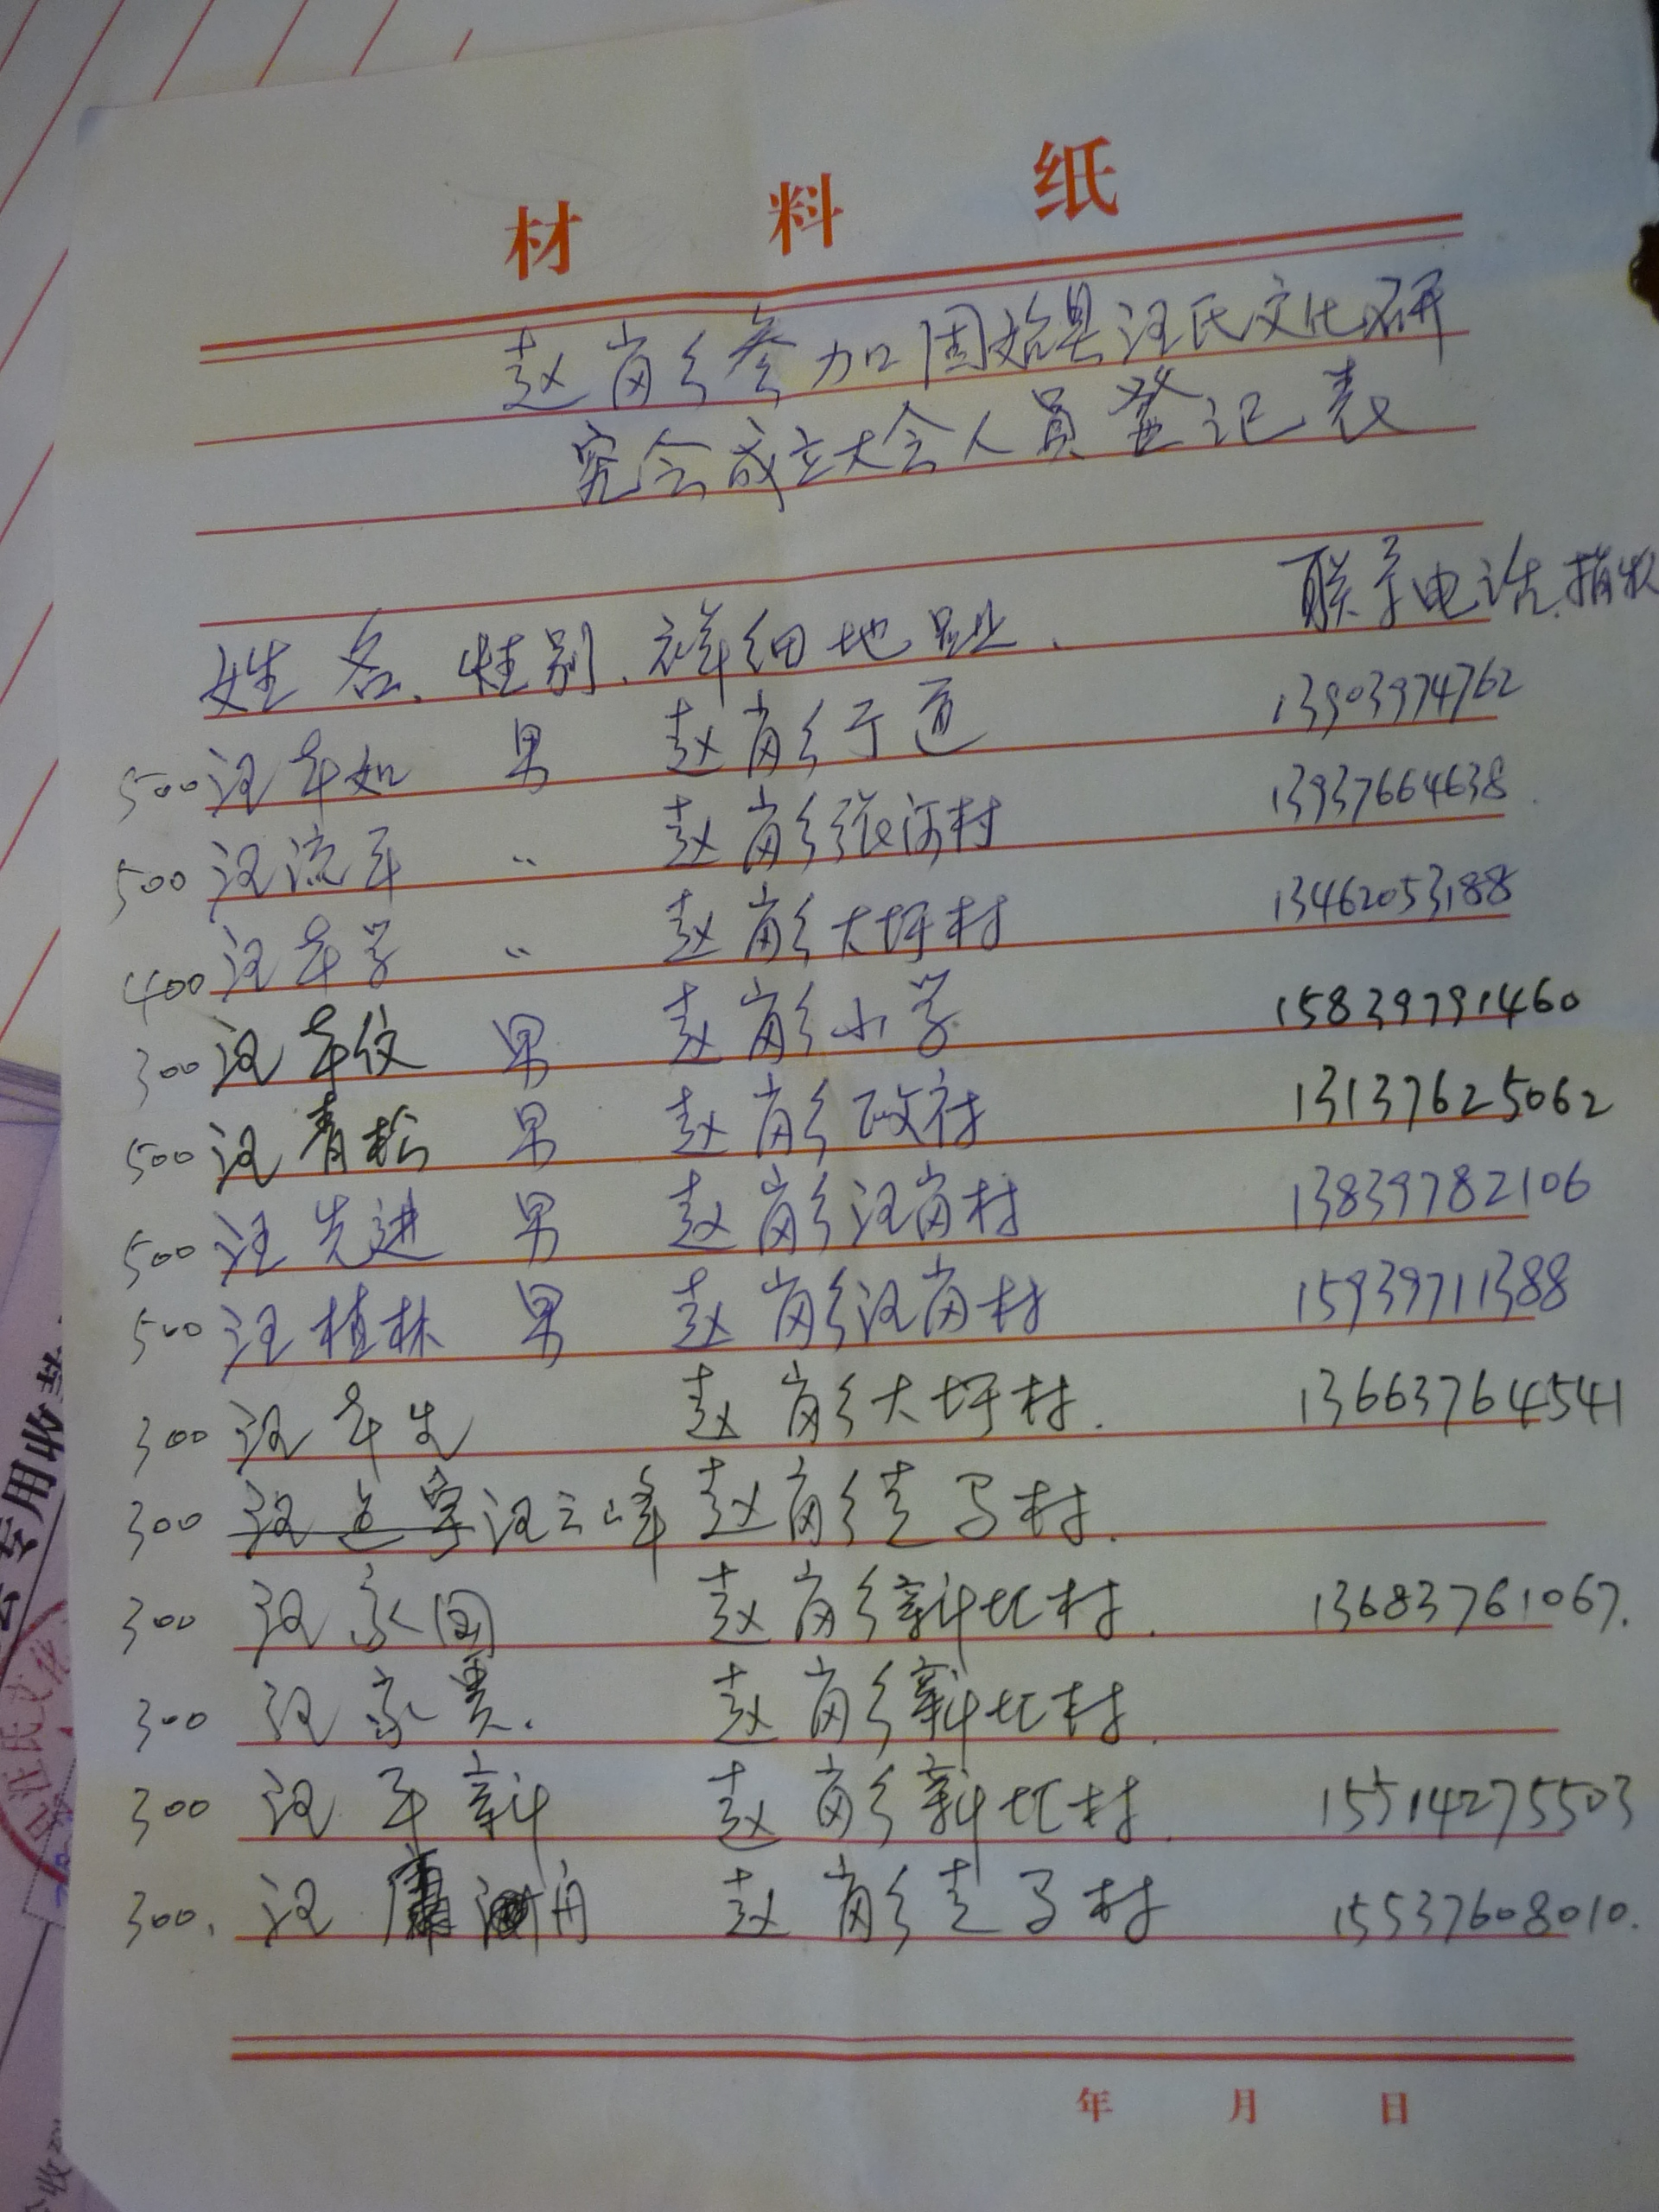 材 料 纸
赵岗乡参加固始县汪氏文化研
究会成立大会人员登记表
姓名、性别、详细地址、 联系电话、捐款
500 汪年如 男 赵岗乡于道 13903974762
500 汪流平 〃 赵岗乡张河村 13937664638
400 汪年学 〃 赵岗乡大圩村 13462053188
300 汪年仪 男 赵岗乡小学 15839791460
500 汪青松 男 赵岗乡政府 13137625062
500 汪先进 男 赵岗乡汪岗村 13839782106
500 汪植林 男 赵岗乡汪岗村 15939711388
300 汪年生 赵岗乡大圩村. 13663764541
300 汪云峰 赵岗乡走马村.
300 汪家国 赵岗乡新北村. 13683761067.
300 汪家贵. 赵岗乡新北村.
300 汪平新 赵岗乡新北村. 15514275503
300. 汪 赵岗乡走马村 15537608010.
年 月 日
专用收
汪氏文化